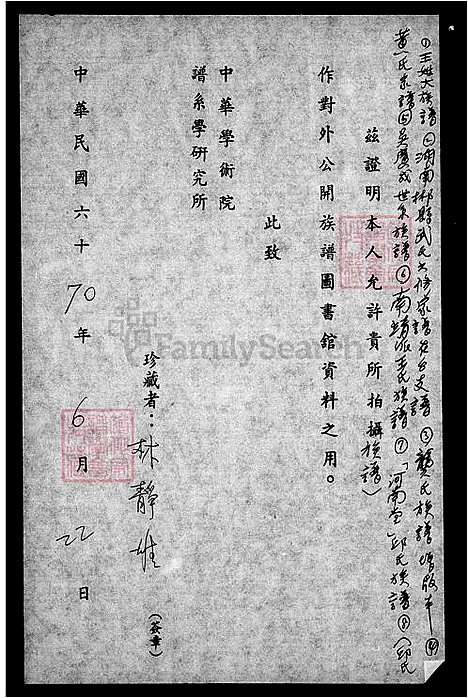 ①王姓大族譜②湖南郴縣武氏六修家譜及分支譜③龔氏族譜 增版本④
黃氏宗譜⑤吳慶成世系族譜⑥南靖派王氏族譜⑦「河南堂」邱氏族譜⑧(邱氏
茲證明本人允許貴所拍攝族譜)
作對外公開族譜圖書館資料之用。
此致
中華學術院
譜系學研究所
珍藏者:林靜雄
(簽章)
中華民國六十70年6月22日
FamilySearch